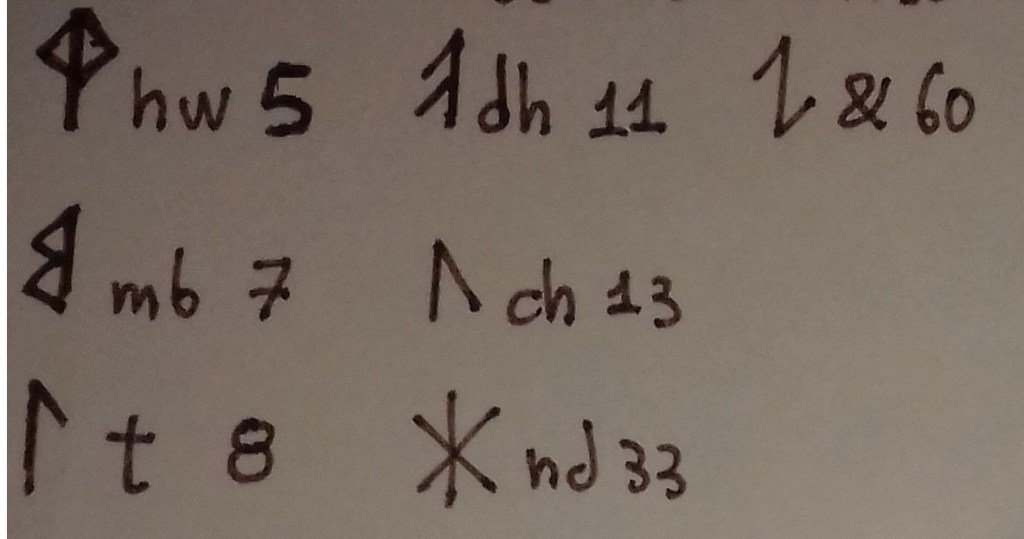 hw 5 dh 11 & 60
mb 7 ch 13
t 8 nd 33